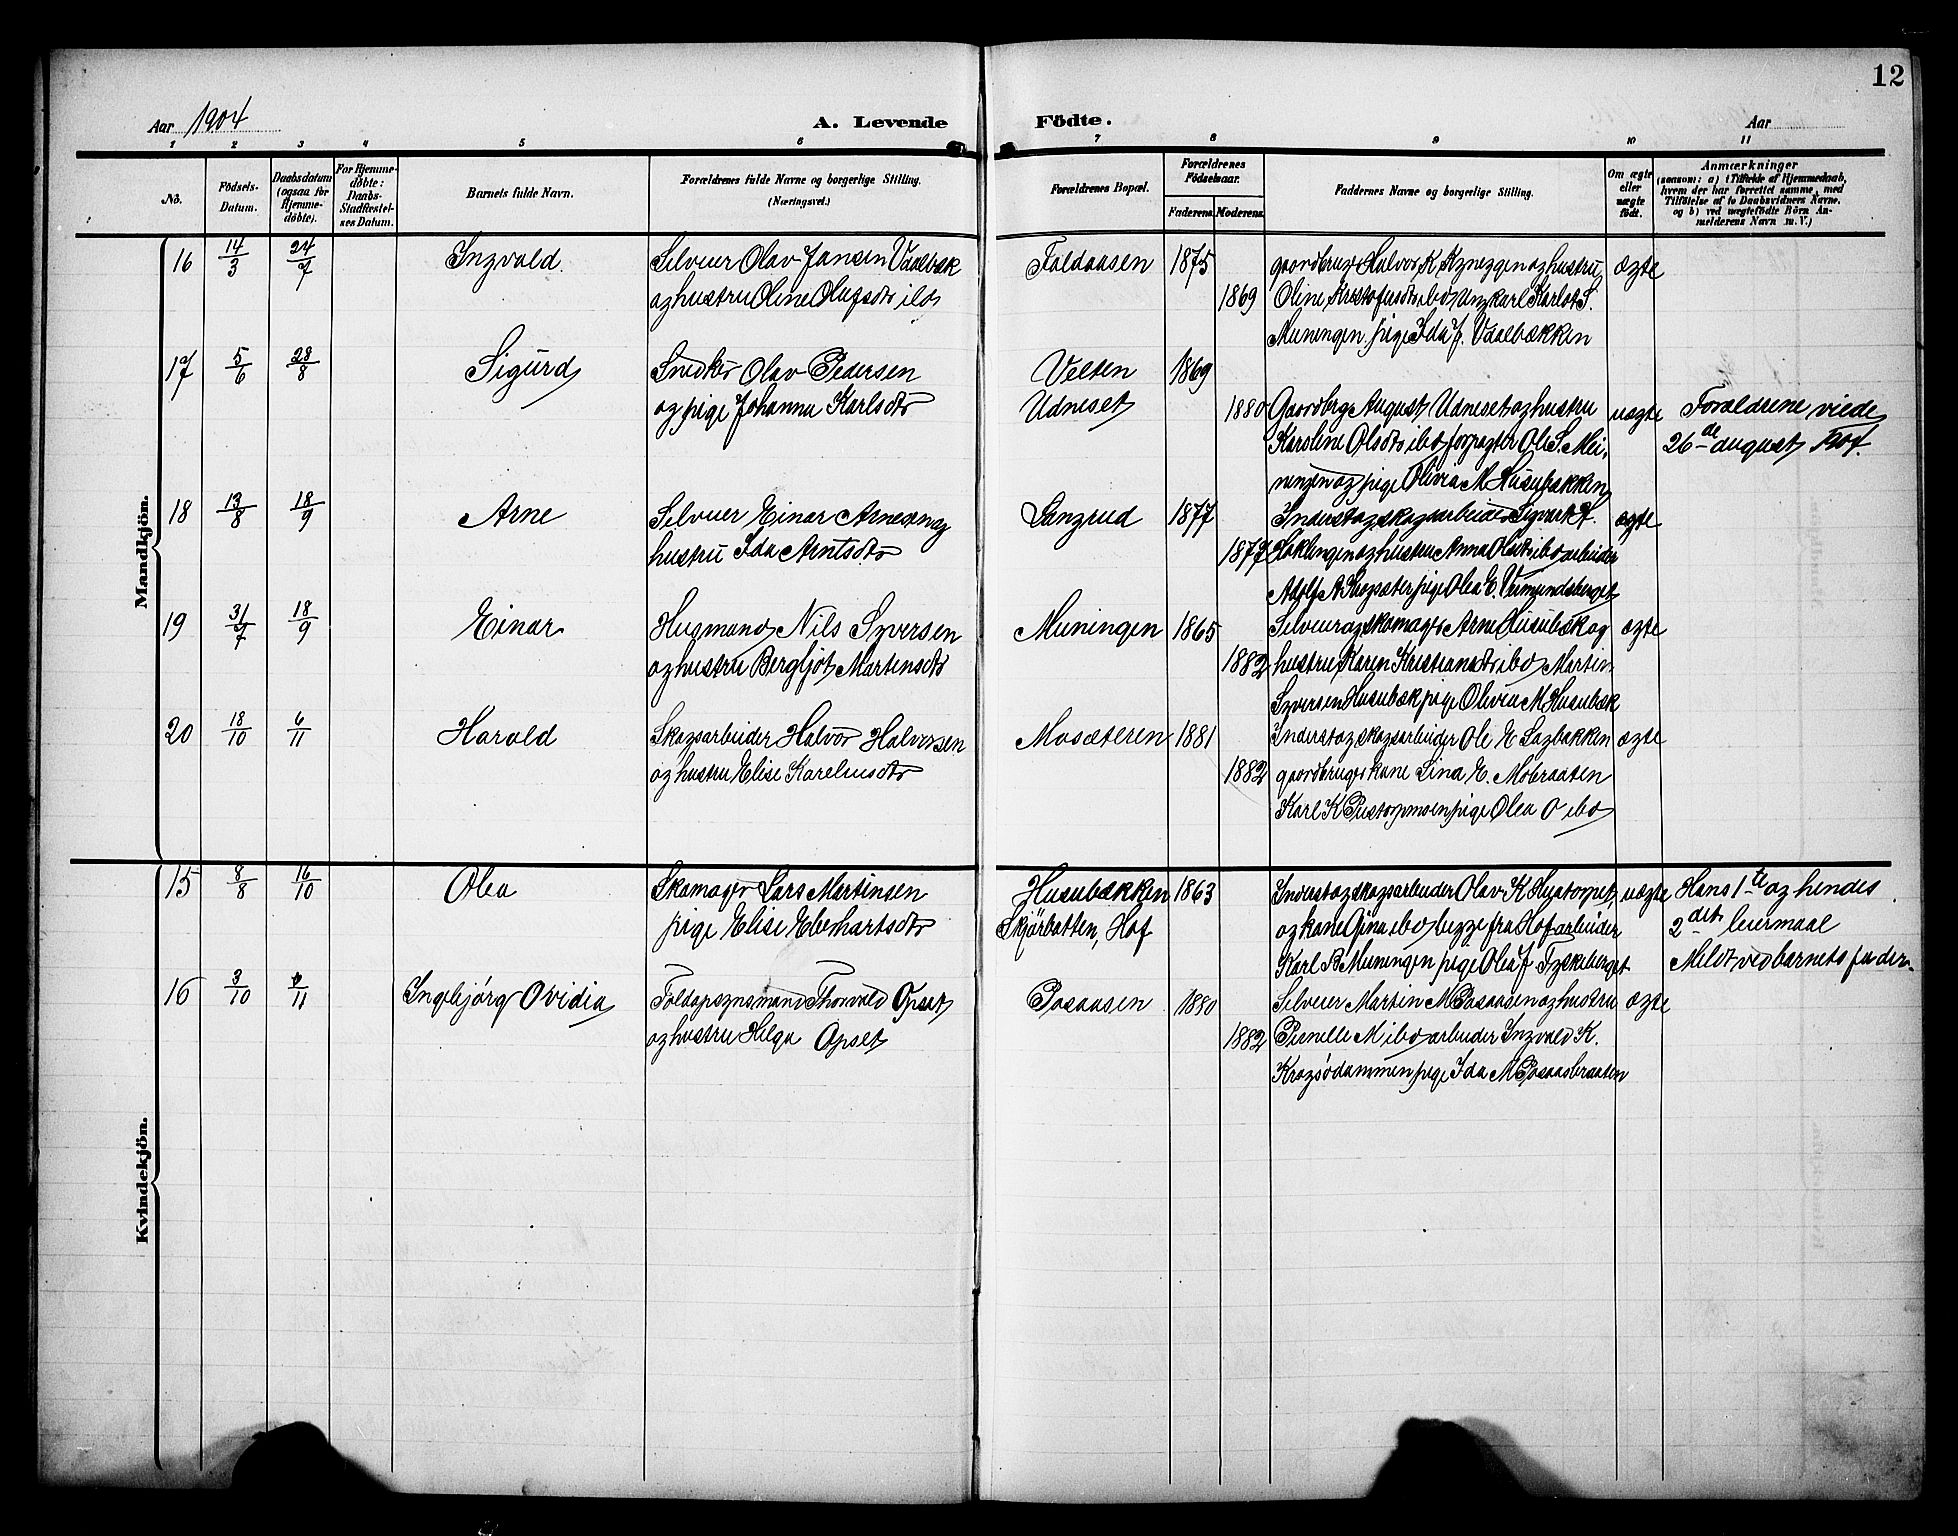 12
Aar 1904 A. Levende Födte. Aar
1 2 3 4 5 6 7 8 9 10 11
No. Födsels-Datum. Daabsdatum (ogsaa for Hjemme-døbte). For Hjemme-døbte: Daabs-Stadfæstel-ses Datum. Barnets fulde Navn. Forældrenes fulde Navne og borgerlige Stilling. (Næringsvei.) Forældrenes Bopæl. Forældrenes Födselsaar. Faderens Moderens Faddernes Navne og borgerlige Stilling. Om ægte eller uægte födt. Anmærkninger (saasom: a) i Tilfælde af Hjemmedaab, hvem der har forrettet samme, med Tilföielse af to Daabsvidners Navne, og b) ved uægtefödte Börn Anmelderens Navn m. V.)
Mandkjön.
16 14/3 24/7 Ingvald. Selveier Olav Jansen Vaalbæk Faldaasen 1875 gaardbruger Halvor K. og hustru ægte
og hustru Oline Olufsdtr ibd 1869 Oline Kristofersdtr ibd ungkarl Karlot S.
Meiningen, pige Ida J. Vaalbækken
17 5/6 28/8 Sigurd Snedker Olav Pedersen Velten 1869
og pige Johanna Karlsdtr Udneset 1880 Gaardbrg August Udneset og hustru uægte Forældrene viede
Karoline Olsdtr ibd forpagter Ole S. Mei- 26de august 1904.
ningen og pige Olivia M Husubækken
18 13/8 18/9 Arne Selveier Einar Arnesen og Langrud 1877 Inderst og skogsarbeider Sigvart H. ægte
hustru Ida Arntsdtr 1877 og hustru Anna Olsdtr ibd arbeider
Adolf A. pige Olea E. Vermundsberget
19 31/7 18/9 Einar Husmand Nils Syversen Meiningen 1865 Selveier og skomager Arne Husubæk og ægte
og hustru Bergljot Martensdtr 1882 hustru Karen Kristiansdtr ibd Martin
Syversen Husubæk pige Olivia M Husubæk
20 18/10 6/11 Harald Skogsarbeider Halvor Halvorsen Mosæteren 1881 Inderst og skogsarbeider Ole E Lagbækken ægte
og hustru Elise Kareliusdtr 1882 gaardbruger kone Lina E. Mobraaten
Karl K pige Olea O ibd
Kvindekjön.
15 8/8 16/10 Olea Skomager Lars Martinsen Husubækken 1863 Inderst og skogsarbeider Olav K uægte Hans 1te og hendes
pige Elise Eberhartsdtr Skjørbatten, Hof og kone Gina ibd begge fra Hof arbeider 2det leiermaal
Karl B Meiningen pige Olea J Tyskeberget Meldt ved barnets fader
16 3/10 6/11 Ingebjörg Ovidia Toldopsynsmand Thorvald Opset Posaasen 1880 Selveier Martin M Posaasen og hustru ægte
og hustru Helga Opset 1882 Pernelle M ibd arbeider Ingvald K.
Krogsødammen pige Ida M Posaasbraaten